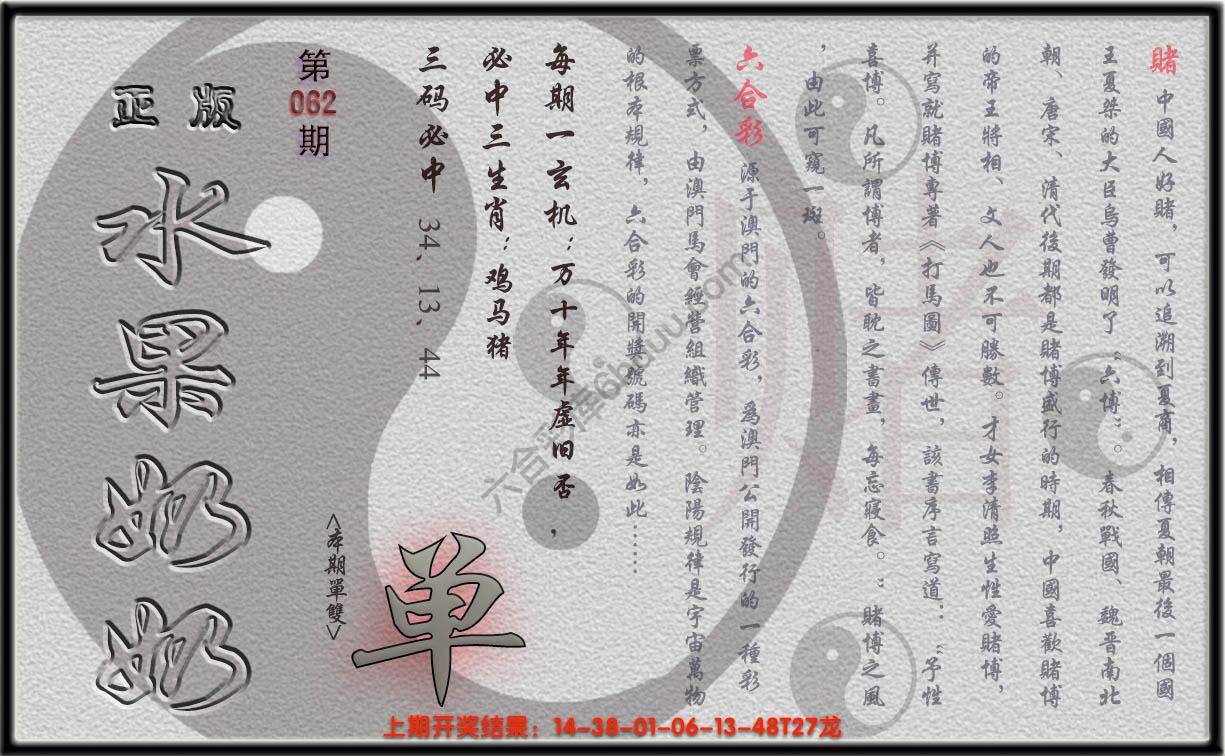 賭 中國人好賭，可以追溯到夏商，相傳夏朝最後一個國
王夏桀的大臣烏曹發明了“六博”。春秋戰國、魏晋南北
朝、唐宋、清代後期都是賭博盛行的時期，中國喜歡賭博
的帝王將相、文人也不可勝數。才女李清照生性愛賭博，
并寫就賭博專著《打馬圖》傳世，該書序言寫道：“予性
喜博。凡所謂博者，皆耽之書畫，每忘寢食。”賭博之風
，由此可窺一斑。
六合彩 源于澳門的六合彩，爲澳門公開發行的一種彩
票方式，由澳門馬會經營組織管理。陰陽規律是宇宙萬物
的根本規律，六合彩的開獎號碼亦是如此……
每期一玄机：万十年年虚旧否，
必中三生肖：鸡马猪
三码必中 34、13、44
第
062
期
<本期單雙>
单
正版
水果奶奶
上期开奖结果：14-38-01-06-13-48T27龙
六合彩库6hduu.com